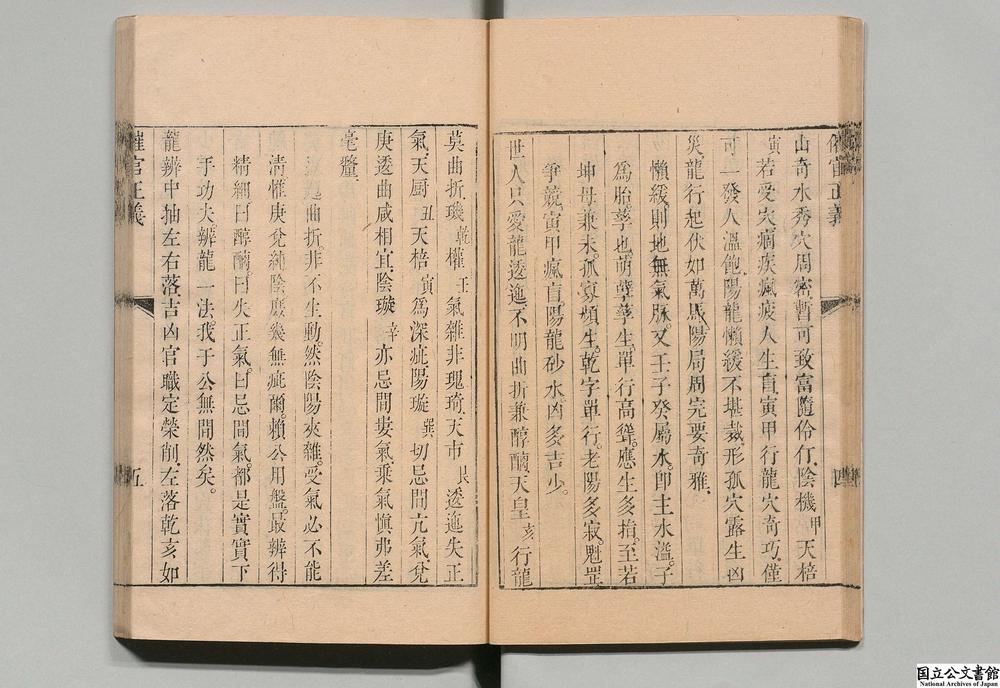 催官正義
四
山奇水秀穴周密暫可致富隨伶仃陰機甲天棓
寅若受穴痼疾瘋疲人生盲寅甲行龍穴奇巧僅
可一發人溫飽陽龍懶緩不堪裁形孤穴露生凶
災龍行起伏如萬馬陽局周完要奇雅
懶緩則地無氣脉又壬子癸屬水卽主水溢子
爲胎孳也萌孽孳生單行高聳應生多指至若
坤母兼未孤寡頻生乾字單行老陽多寂魁罡
爭競寅甲瘋盲陽龍砂水凶多吉少
世人只愛龍透迤不明曲折兼醇醨天皇亥行龍
莫曲折璣乾權壬氣雜非瑰琦天市艮透迤失正
氣天厨丑天棓寅爲深疵陽璇巽切忌間亢氣兌
庚透曲咸相宜陰璇辛亦忌間婁氣乘氣愼弗差
毫釐
透迤曲折非不生動然陰陽夾雜受氣必不能
清惟庚兌純陰庶幾無疵爾賴公用盤最辨得
精細曰醇醨曰失正氣曰忌間氣都是實實下
手功夫辨龍一法我于公無間然矣
龍辨中抽左右落吉凶官職定榮削左落乾亥如
催官正義
五
国立公文書館
National Archives of Japan